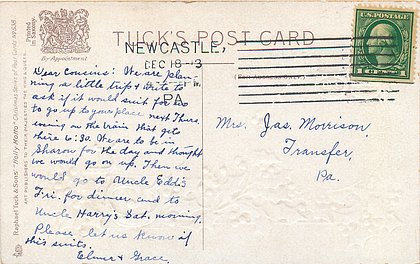 TUCK'S POST CARD
By Appointment
NEWCASTLE,
DEC 18-3
PA.
U.S. POSTAGE
Dear Cousins: We are plan-
ning a little trip & write to
ask if it would suit for us
to go up to your place next Thurs.
evening on the train that gets
there 6:30. We are to be in
Sharon for the day and thought
we would go up. Then we
would go to Uncle Edd's
Fri. for dinner and to
Uncle Harry's Sat. morning.
Please let us know if
this suits.
Elmer & Grace.
Mrs. Jas. Morrison,
Transfer,
Pa.
Raphael Tuck & Sons'
ART PUBLISHERS TO THEIR MAJESTIES THE KING & QUEEN
Printed
in Saxony.